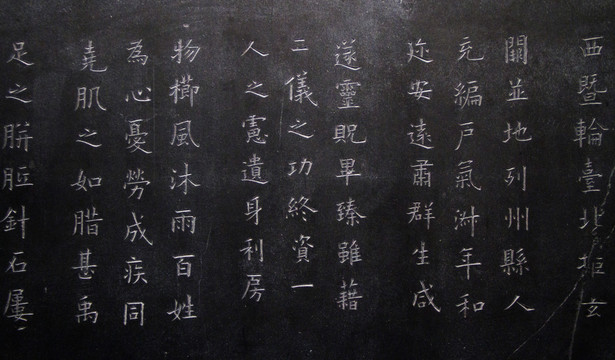 西暨輪臺北拒玄
闕並地列州縣人
充編戶氣淑年和
迩安遠肅群生咸
遂靈貺畢臻雖藉
二儀之功終資一
人之慮遺身利房
物櫛風沐雨百姓
為心憂勞成疾同
堯肌之如腊甚禹
足之胼胝針石屢